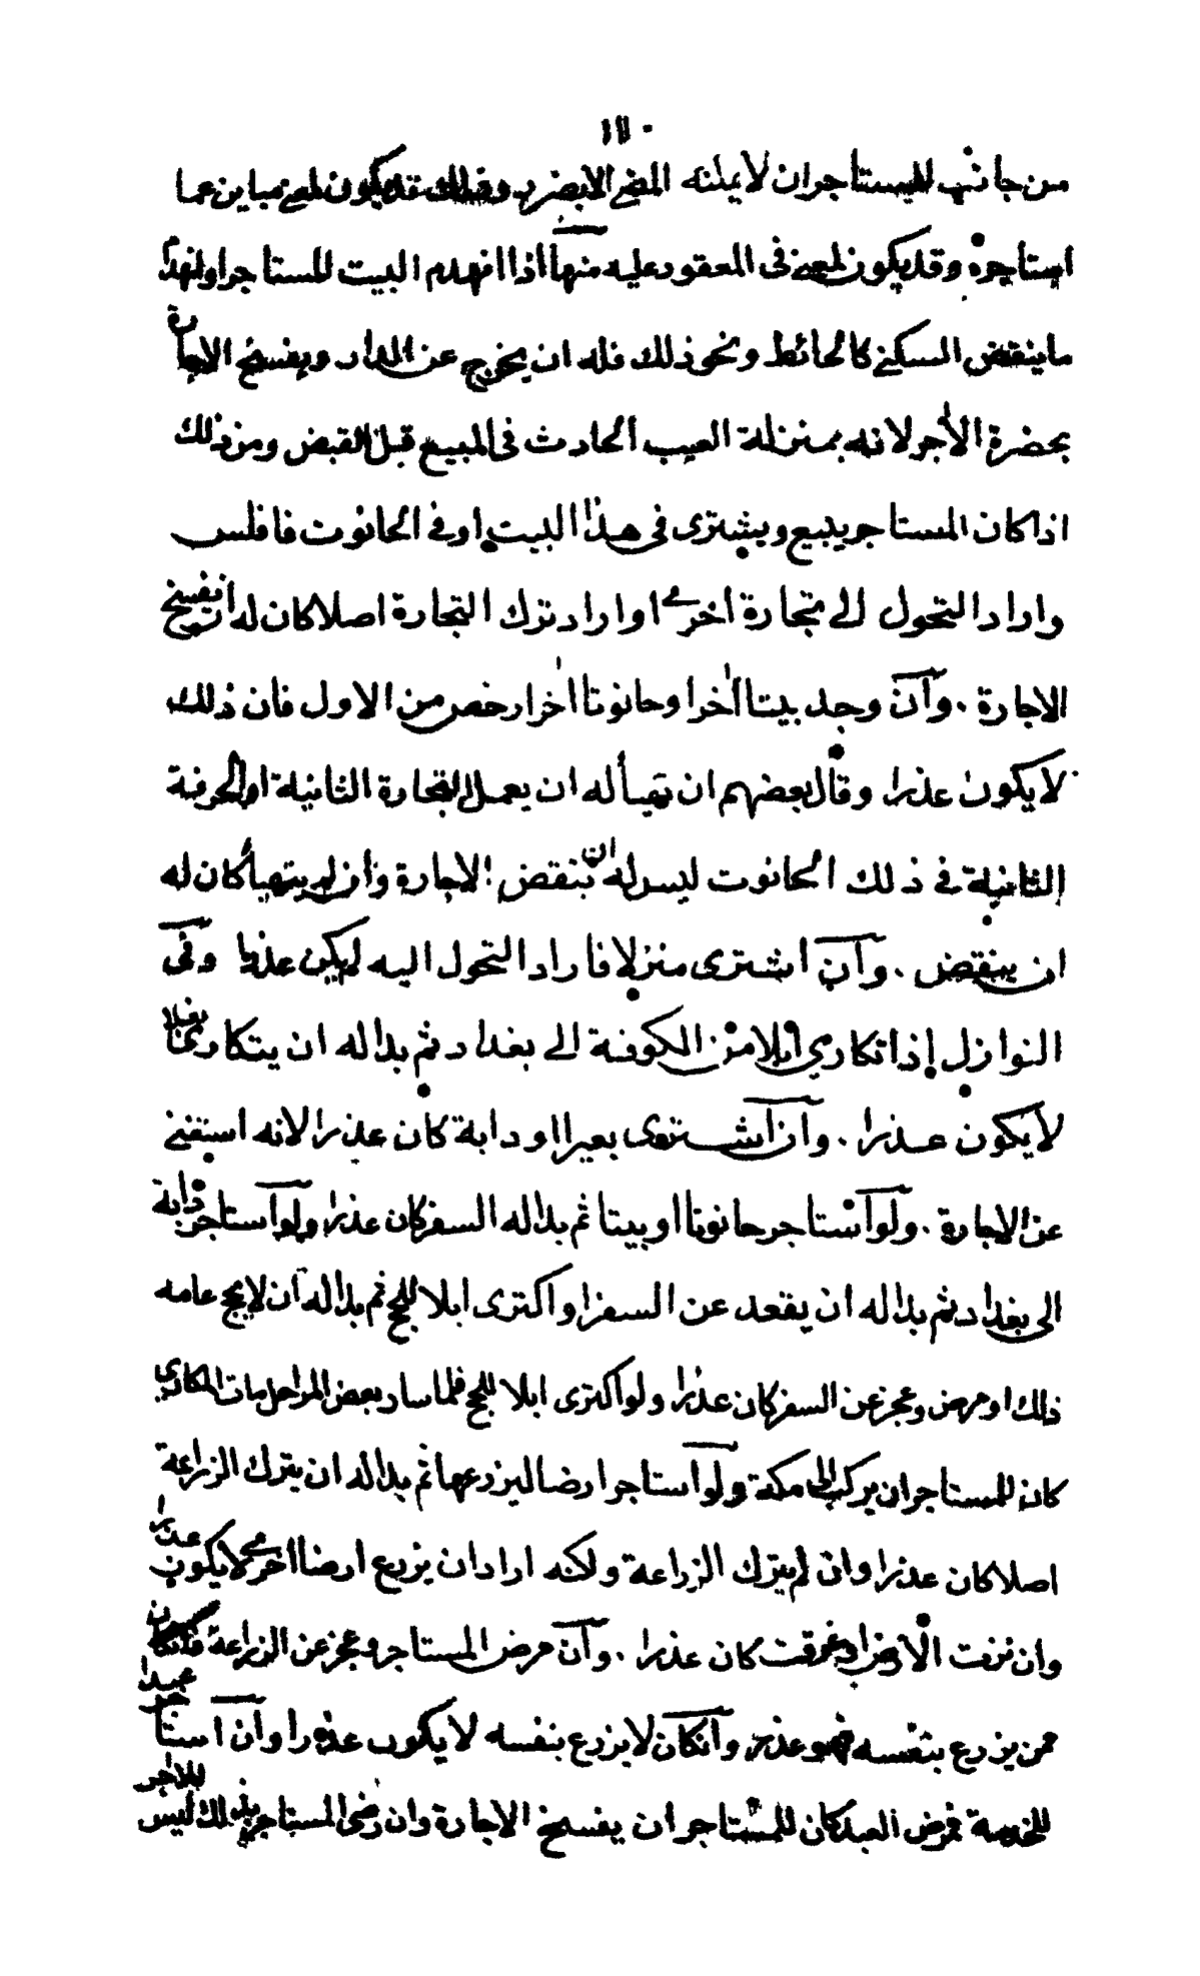 ١١٠
من جانب المستاجر ان لا يمكنه المضي الا بضرر وذلك قد يكون لمعنى مباين عما
استاجره وقد يكون لمعنى فى المعقود عليه منها اذا انهدم البيت المستاجر او انهدم
ما ينقض السكنى كالحائط ونحو ذلك فله ان يخرج عن الدار ويفسخ الاجارة
بحضرة الآجر لانه بمنزلة العيب الحادث فى المبيع قبل القبض ومن ذلك
اذا كان المستاجر يبيع ويشترى فى هذا البيت او فى الحانوت فافلس
واراد التحول الى تجارة اخرى او اراد ترك التجارة اصلا كان له ان يفسخ
الاجارة . وآن وجد بيتا اخر او حانوتا اخر ارخص من الاول فان ذلك
لا يكون عذرا وقال بعضهم ان تهيأ له ان يعمل التجارة الثانية او الحرفة
الثانية فى ذلك الحانوت ليس له ان ينقض الاجارة وان لم يتهيأ كان له
ان ينقض . وآن اشترى منزلا فاراد التحول اليه لم يكن عذرا وفى
النوازل إذا تكارى ابلا من الكوفة الى بغداد ثم بدا له ان يتكارى بغلا
لا يكون عذرا . وآن اشترى بعيرا او دابة كان عذرا لانه استغنى
عن الاجارة . ولو استاجر حانوتا او بيتا ثم بدا له السفر كان عذرا ولو استاجر دابة
الى بغداد ثم بدا له ان يقعد عن السفر او اكترى ابلا للحج ثم بدا له ان لا يحج عامه
ذلك او مرض وعجز عن السفر كان عذرا ولو اكترى ابلا للحج فلما سار بعض المراحل مات المكارى
كان للمستاجر ان يركب الى مكة ولو استاجر ارضا ليزرعها ثم بدا له ان يترك الزراعة
اصلا كان عذرا وان لم يترك الزراعة ولكنه اراد ان يزرع ارضا اخرى لا يكون عذرا
وان نزت الارض او غرقت كان عذرا . وآن مرض المستاجر وعجز عن الزراعة فان كان
ممن يزرع بنفسه فهو عذر وآن كان لا يزرع بنفسه لا يكون عذرا وآن استاجر عبدا
للخدمة فمرض العبد كان للمستاجر ان يفسخ الاجارة وان رضى المستاجر بذلك ليس للآجر